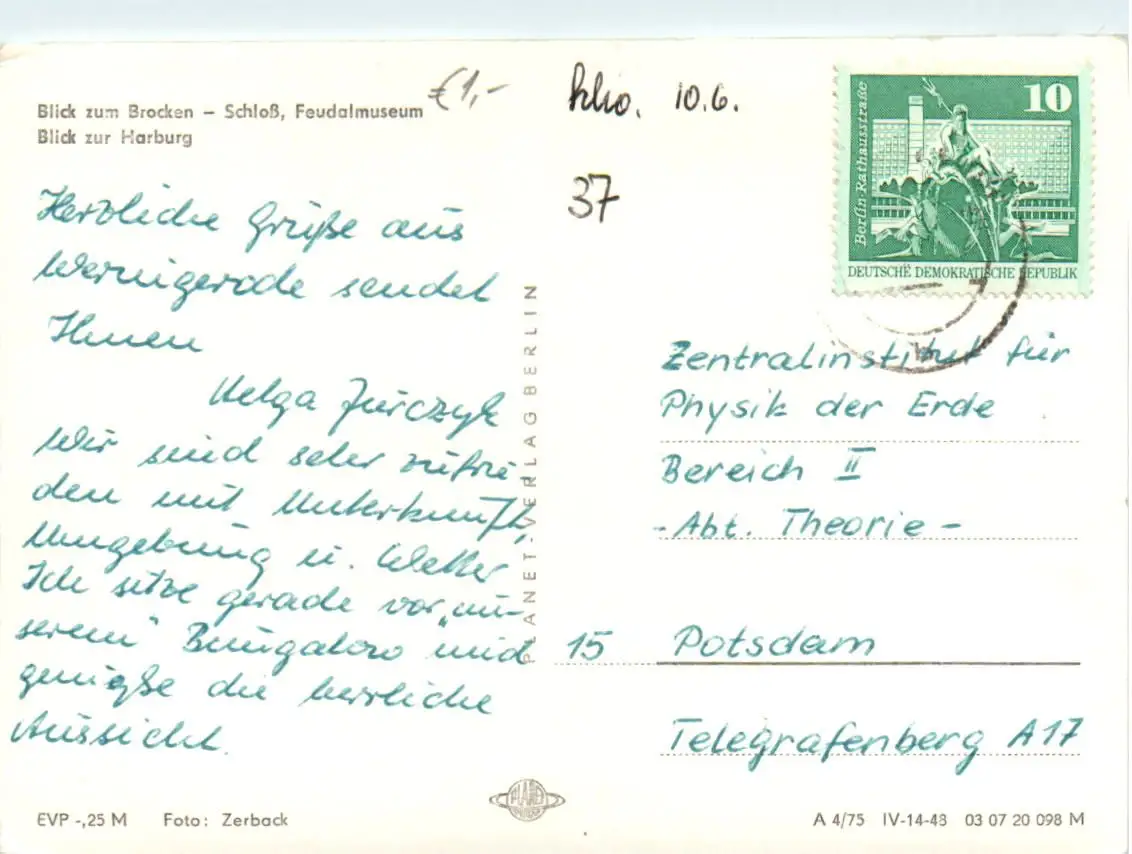 Blick zum Brocken – Schloß, Feudalmuseum
Blick zur Harburg
€1,-
10.6.
37
Herzliche Grüße aus
Wernigerode sendet
Ihnen
Helga Jurczyk
Wir sind sehr zufrie-
den mit Unterkunft,
Umgebung u. Wetter
Ich sitze gerade vor „un-
serem" Bungalow und
genieße die herrliche
Aussicht.
PLANET-VERLAG BERLIN
10
Berlin-Rathausstraße
DEUTSCHE DEMOKRATISCHE REPUBLIK
Zentralinstitut für
Physik der Erde
Bereich II
- Abt. Theorie -
15 Potsdam
Telegrafenberg A17
PLANET
EVP -,25 M Foto: Zerback
A 4/75 IV-14-48 03 07 20 098 M